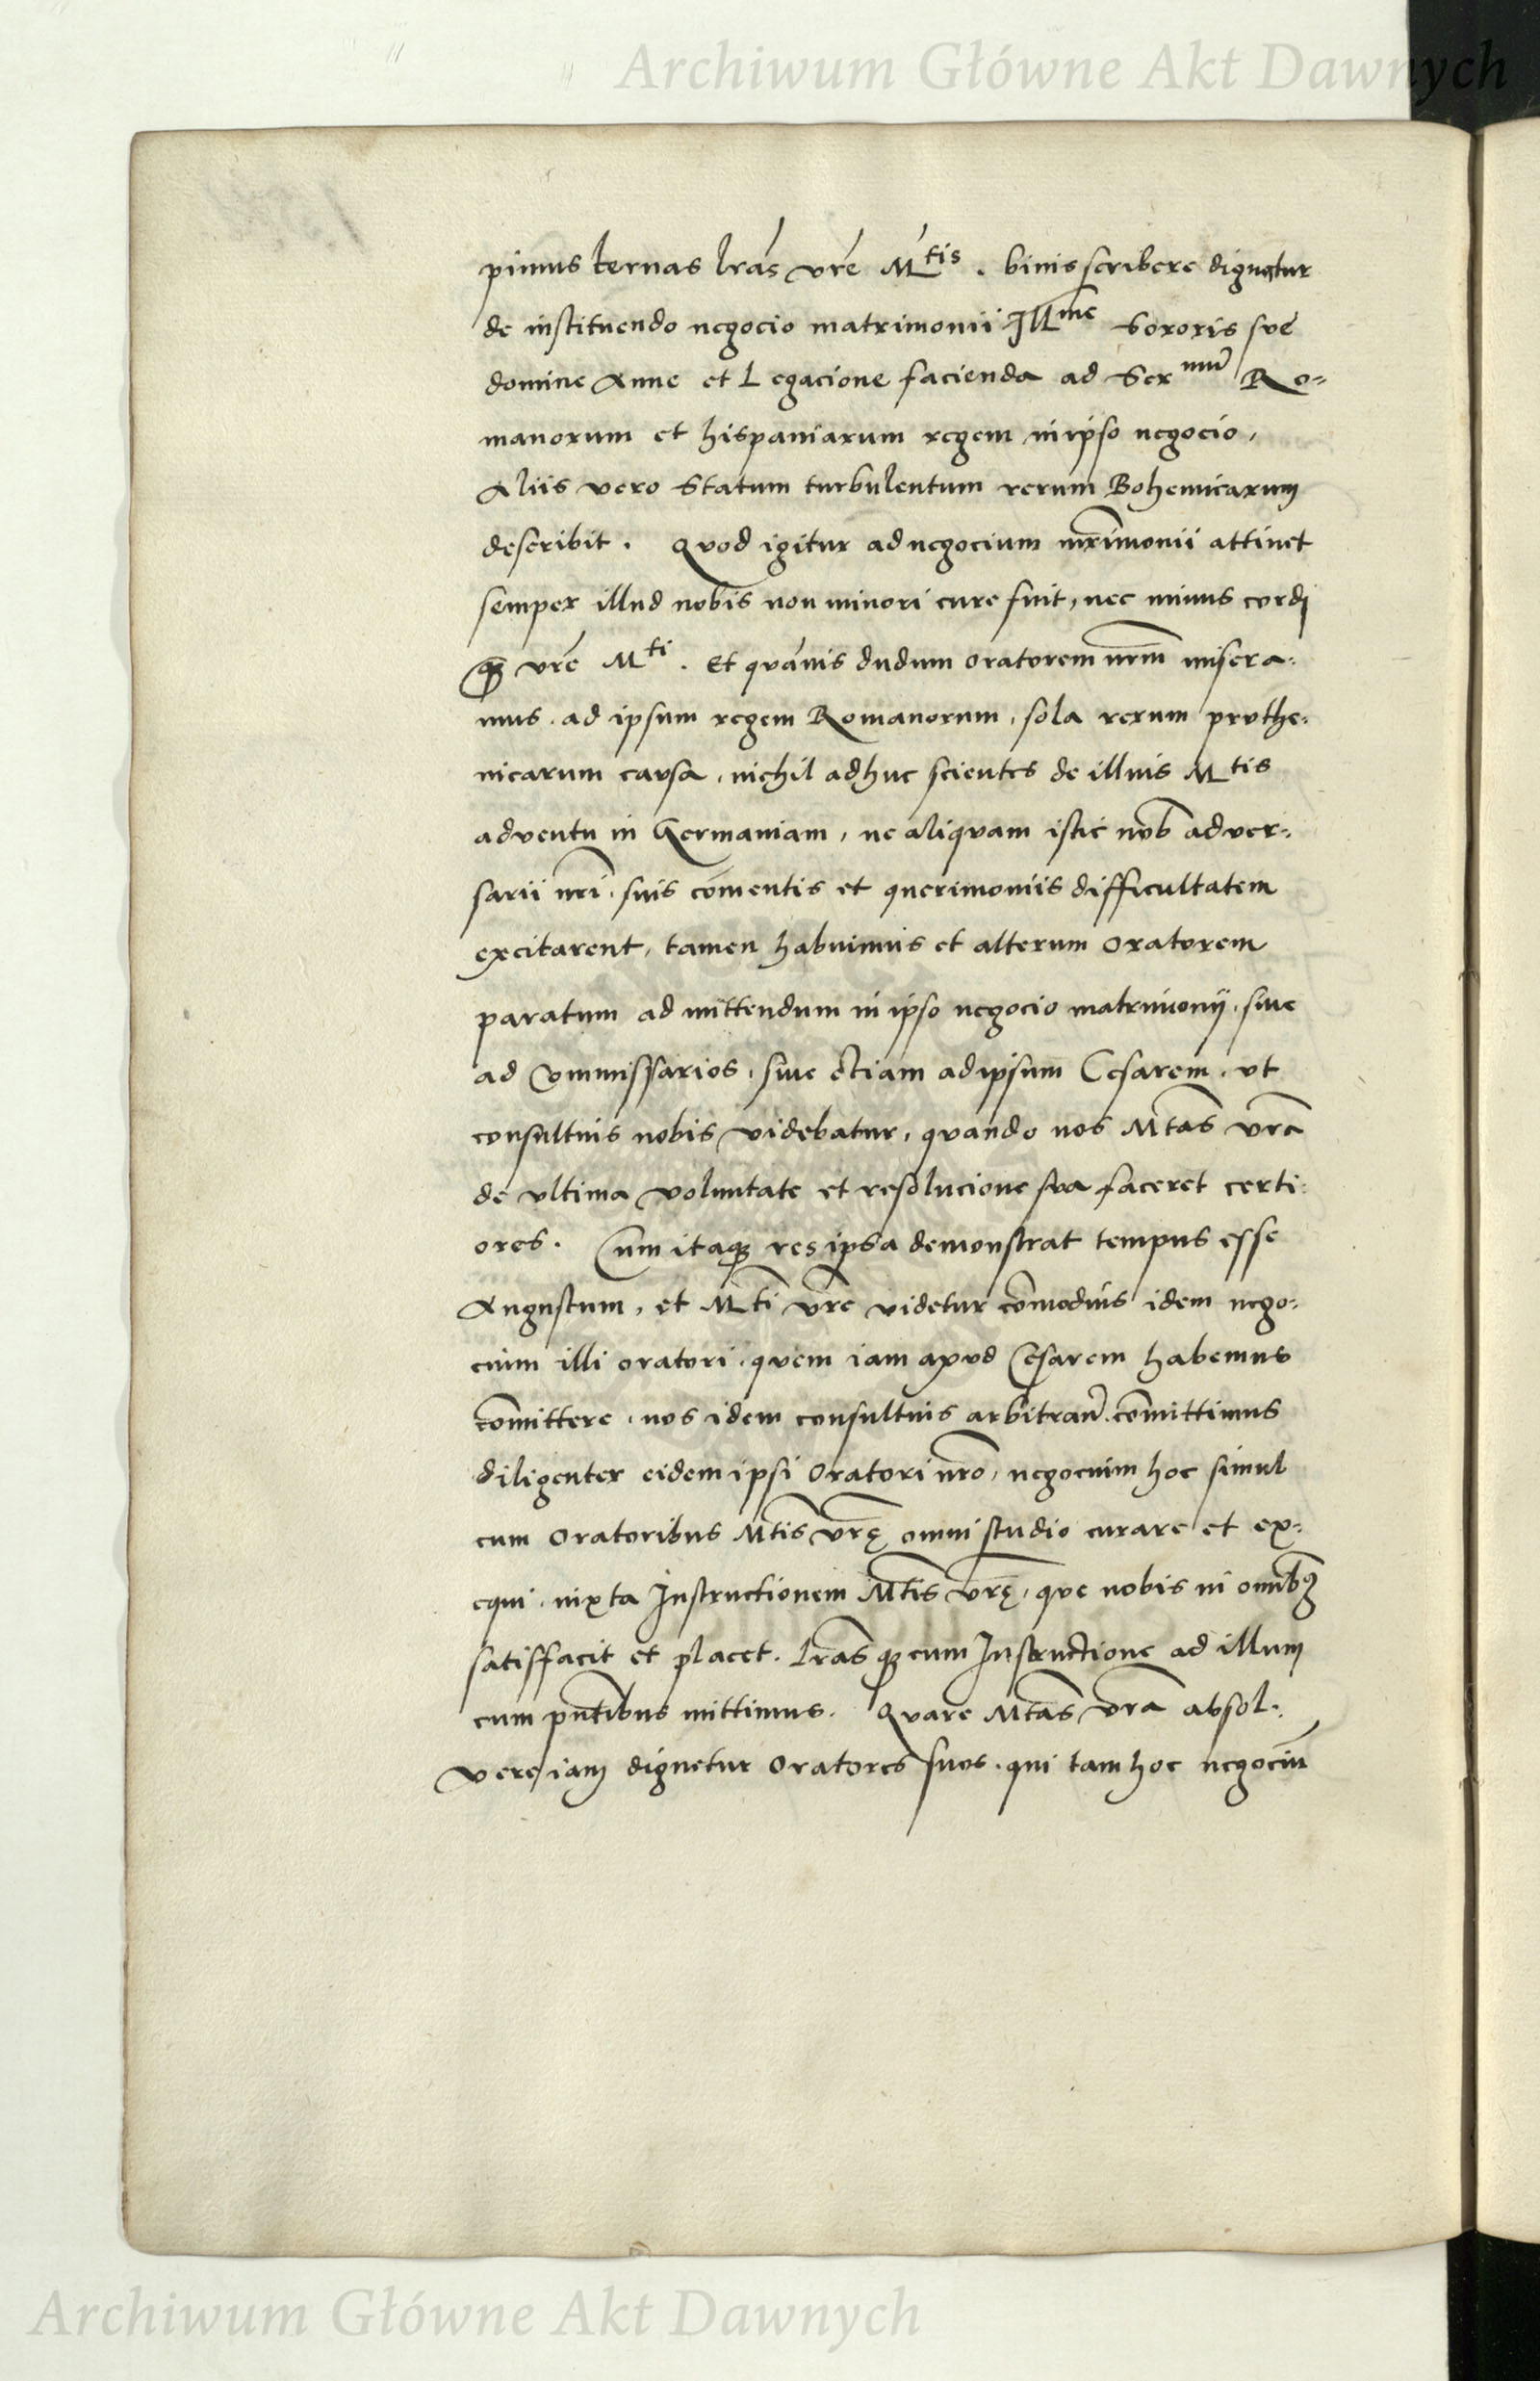 Archiwum Główne Akt Dawnych
pimus ternas lras vre Mtis. binis scribere dignatur
de instituendo negocio matrimonii Illme Sororis sue
domine Anne et Legacione facienda ad Sermu Ro-
manorum et hispaniarum regem in ipso negocio,
Aliis vero Statum turbulentum rerum Bohemicarum
describit. Quod igitur ad negocium mrimonii attinet
semper illud nobis non minori cure fuit, nec minus cordi
q vre Mti. Et quavis dudum oratorem nrm misera-
mus. ad ipsum regem Romanorum, sola rerum pruthe-
nicarum causa, nichil adhuc scientes de illius Mtis
adventu in Germaniam, ne aliquam istic nob adver-
sarii nri. suis comentis et querimoniis difficultatem
excitarent, tamen habuimus et alterum oratorem
paratum ad mittendum in ipso negocio matrimonij, sive
ad Commissarios, sive etiam ad ipsum Cesarem, ut
consultius nobis videbatur, quando nos Mtas vra
de ultima voluntate et resolucione sua faceret certi-
ores. Cum itaq res ipsa demonstrat tempus esse
Angustum, et Mti vre videtur comodius idem nego-
cium illi oratori. quem iam apud Cesarem habemus
comittere. nos idem consultius arbitrati. comittimus
diligenter eidem ipsi Oratori nro, negocium hoc simul
cum Oratoribus Mtis vrę omni studio curare et ex-
equi. iuxta Instructionem Mtis vrę, que nobis in omnibq
satisfacit et placet. Lras q cum Instructione ad illum
cum pntibus mittimus. Quare Mtas vra absol-
vere iam dignetur Oratores suos. qui tam hoc negociu
Archiwum Główne Akt Dawnych